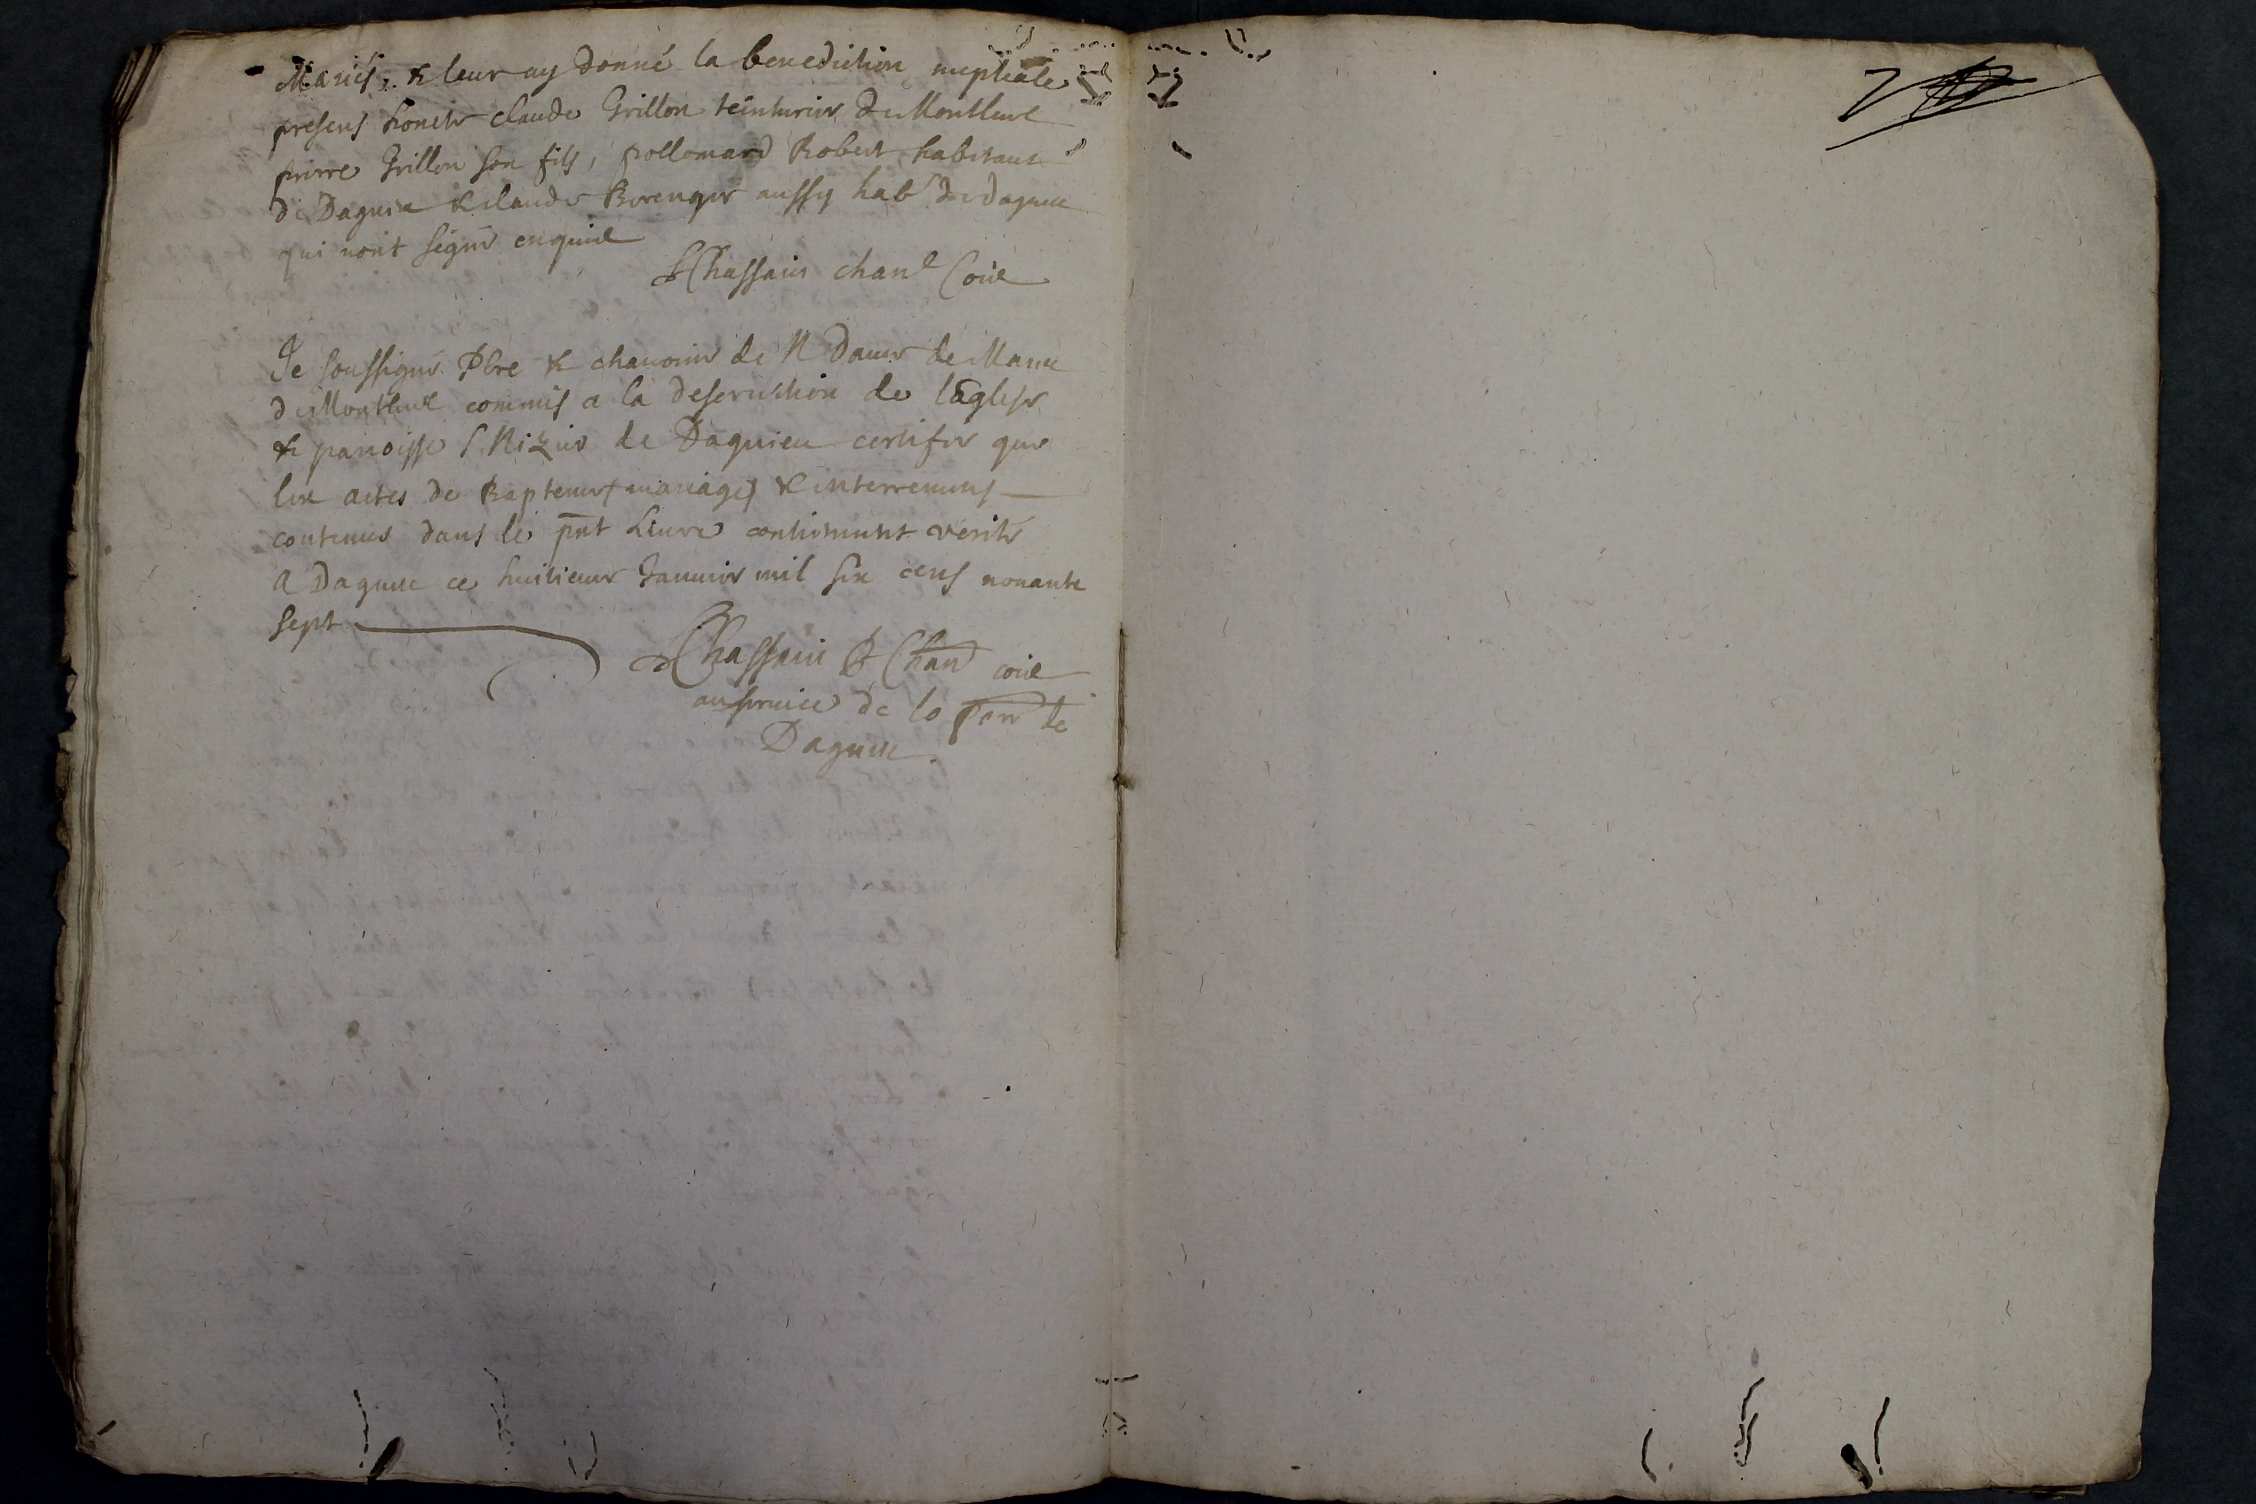 Mariés, & leur ay donné la benediction nuptiale
presens honete claude Grillon teinturier de Montluel
pierre Grillon son fils, Robert habitant
de Dagnieu & claude Berenger aussy hab de Dagnieu
qui nont signé enquis
Chassain chan Coie
Je soussigné Pbre & chanoine de N Dame de Marie
de Montluel commis a la deserviction de léglise
& parroisse S Nizier de Dagnieu certifie que
les actes de Baptemes mariages & interremens
contenus dans le pnt Livre contiennent verité
A Dagnieu ce huitieme Janvier mil six cens nonante
sept
Chassain P Chan coie
au service de la parr de
Dagnieu